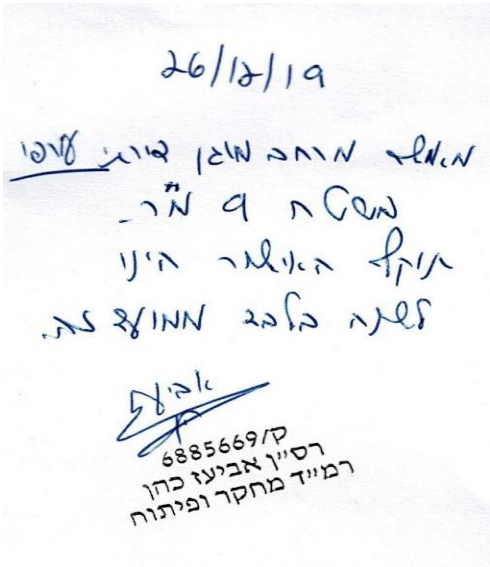 26/12/19
מאשר מרחב מוגן דירתי עורפי
משטח 9 מ"ר.
תוקף האישור הינו
לשנה בלבד ממועד זה.
אביעז
ק/6885669
רס"ן אביעז כהן
רמ"ד מחקר ופיתוח